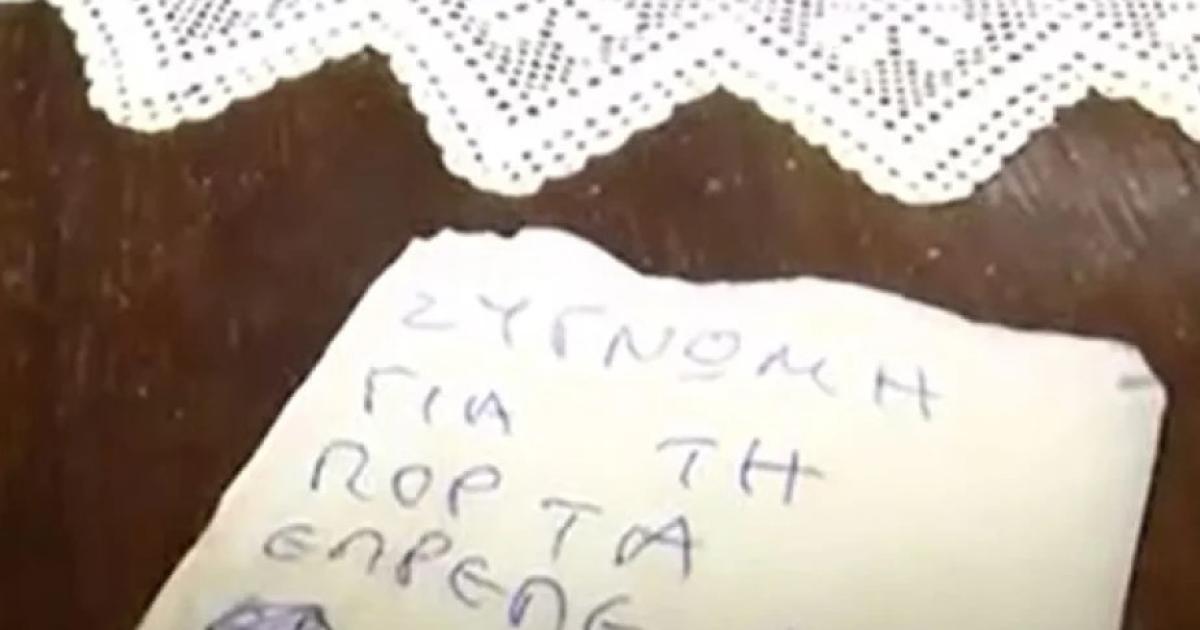 ΣΥΓΝΩΜΗ
ΓΙΑ ΤΗ
ΠΟΡΤΑ
ΕΠΡΕΠΕ